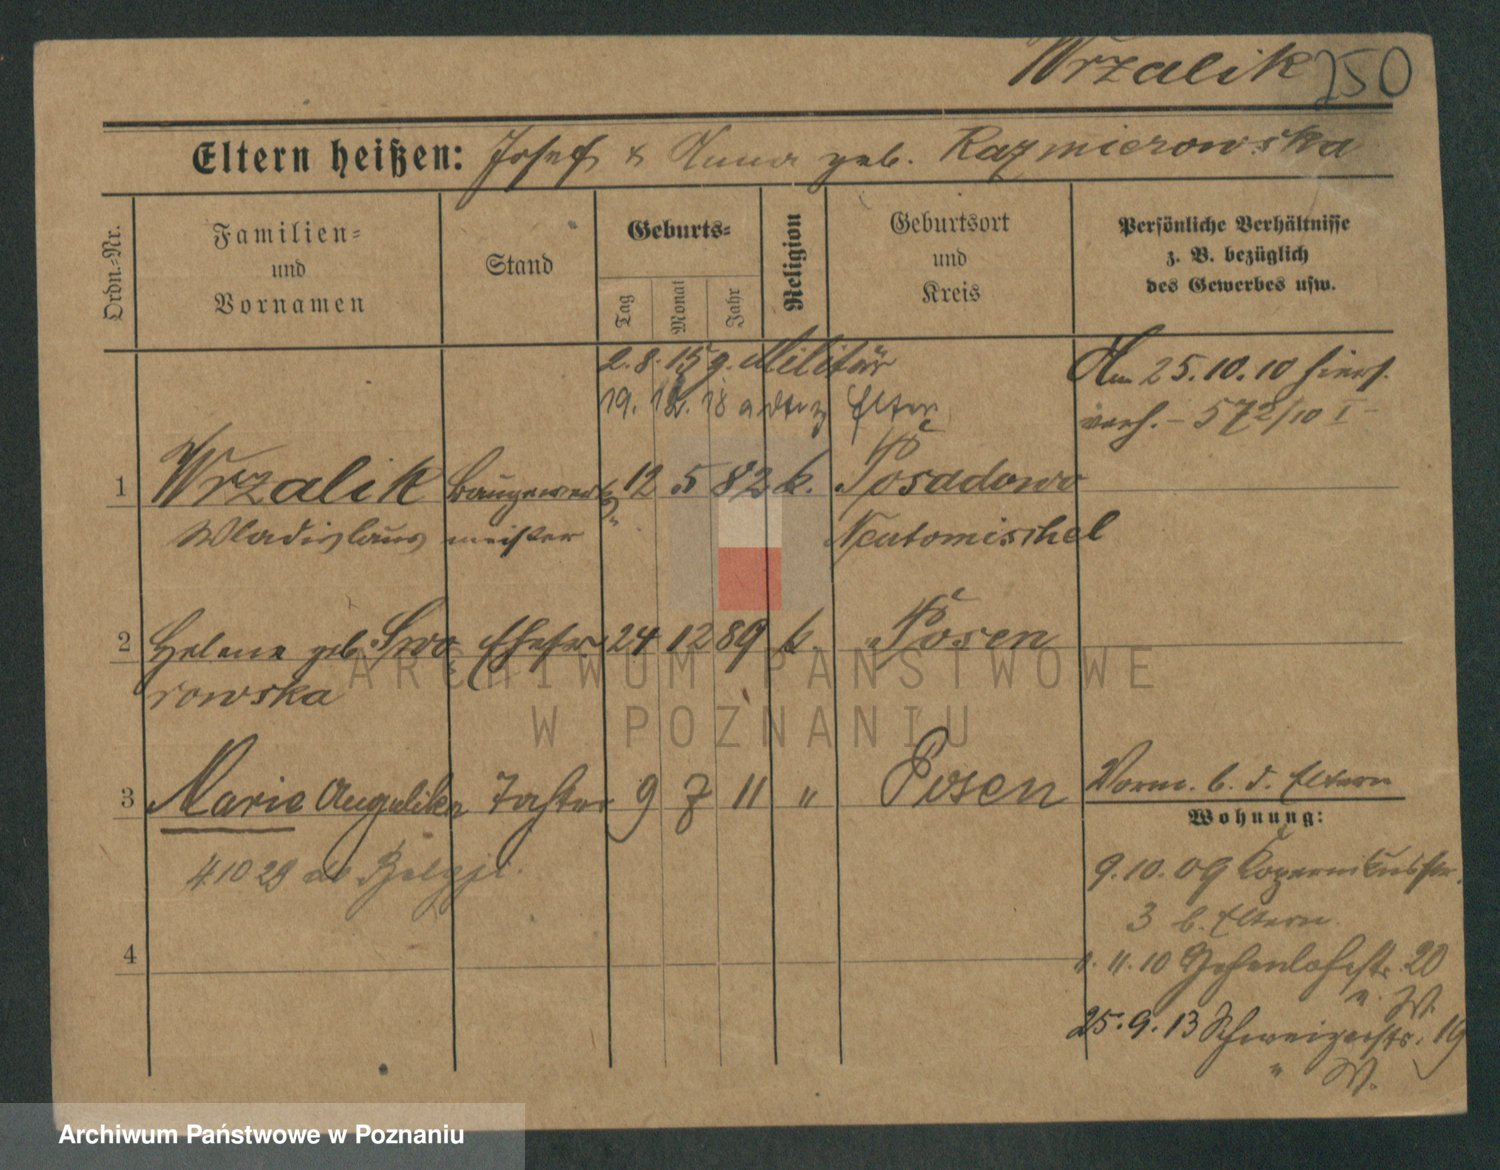 Wrzalik 250
Eltern heißen: Josef & Anna geb. Kazmierowska
Ordn.-Nr.
Familien-
und
Vornamen
Stand
Geburts-
Tag
Monat
Jahr
Religion
Geburtsort
und
Kreis
Persönliche Verhältnisse
z. B. bezüglich
des Gewerbes usw.
2. 8. 15 z. Militär
19. 12. 18 Elter
Am 25. 10. 10 hiers.
verh. – 572/10 I –
1 Wrzalik Baugewerks 12 5 82 k. Posadowo
Wladislaus meister Neutomischel
2 Helene geb. Swo Ehefr 24 12 89 k. Posen
rowska
3 Marie Angelika Tochter 9 7 11 " Posen
Vorm. b. d. Eltern
Wohnung:
4.10 29 do Belgji.
9. 10. 09 Kopernikusstr.
3 b. Eltern.
4
1. 11. 10 Hohenlohestr. 20
W.
25. 9. 13 Schweizerstr. 19
" W.
ARCHIWUM PAŃSTWOWE
W POZNANIU
Archiwum Państwowe w Poznaniu